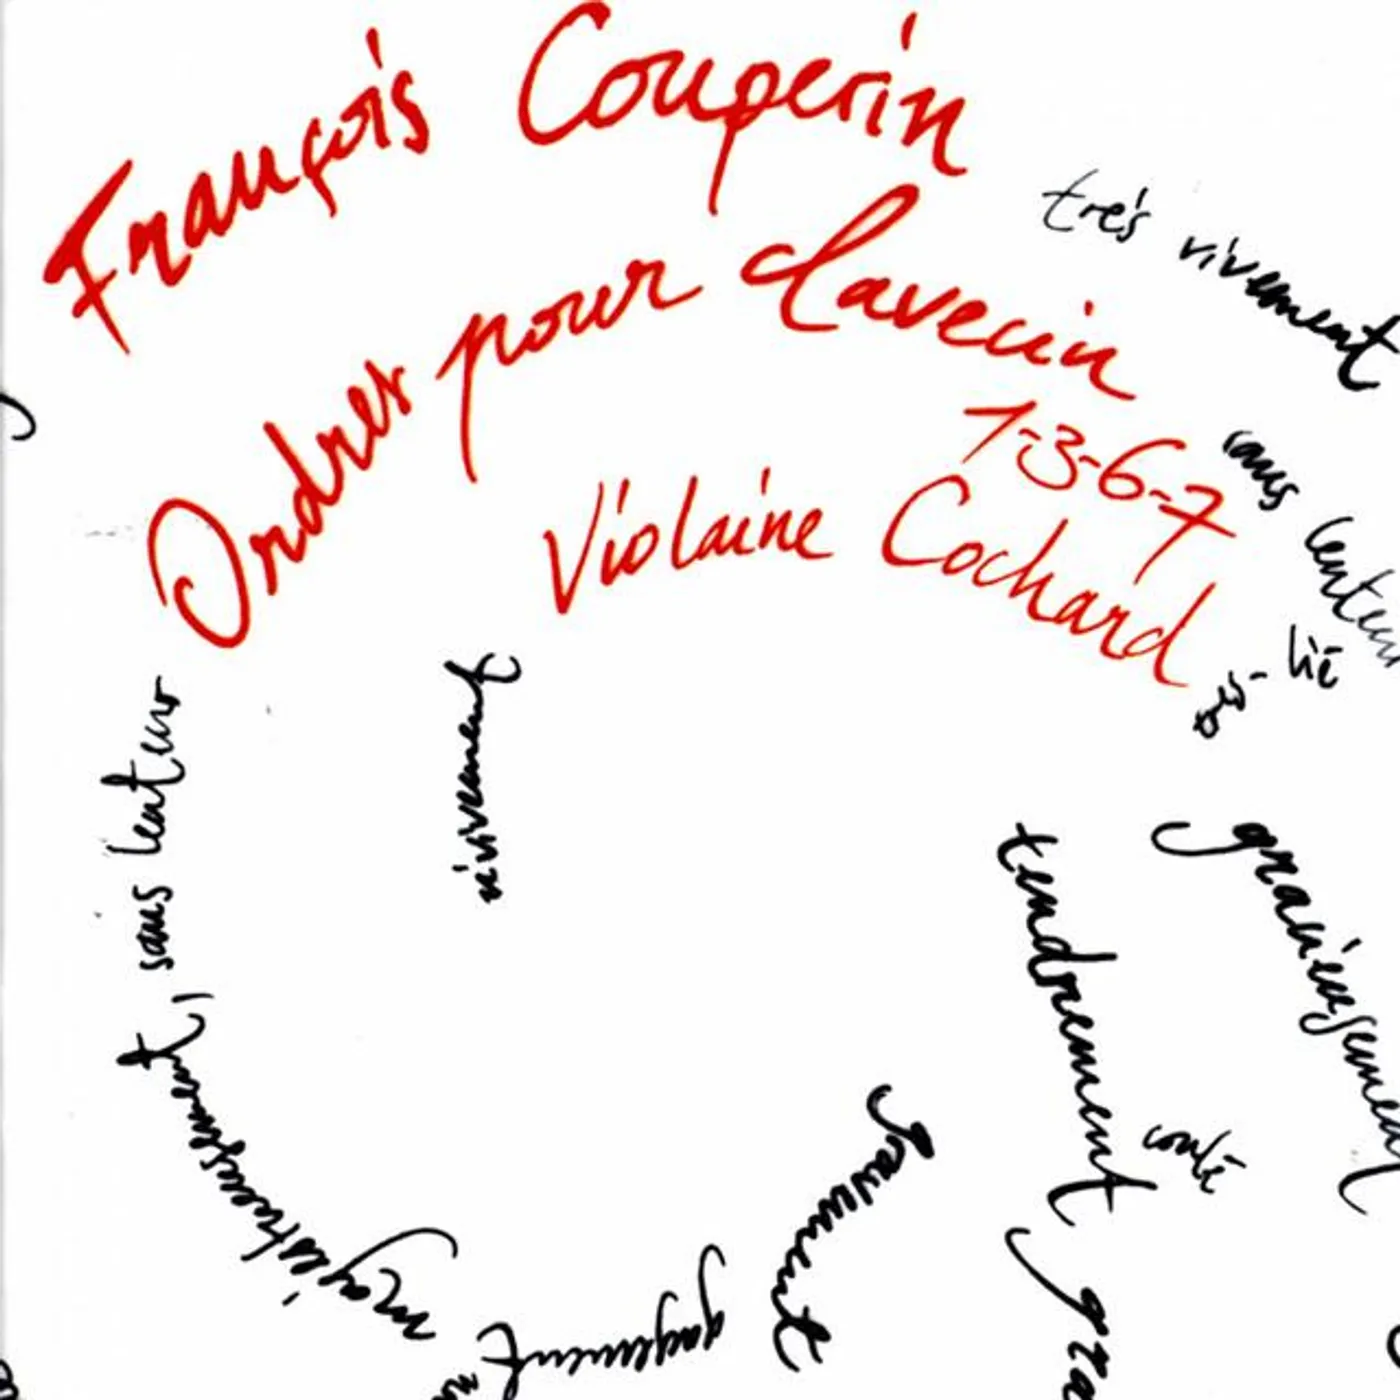 François Couperin
Ordres pour clavecin
1-3-6-7
Violaine Cochard
très vivement
sans lenteur
lié
gracieusement
tendrement
coulé
gra
gravement
gayement
majestueusement, sans lenteur
vivement